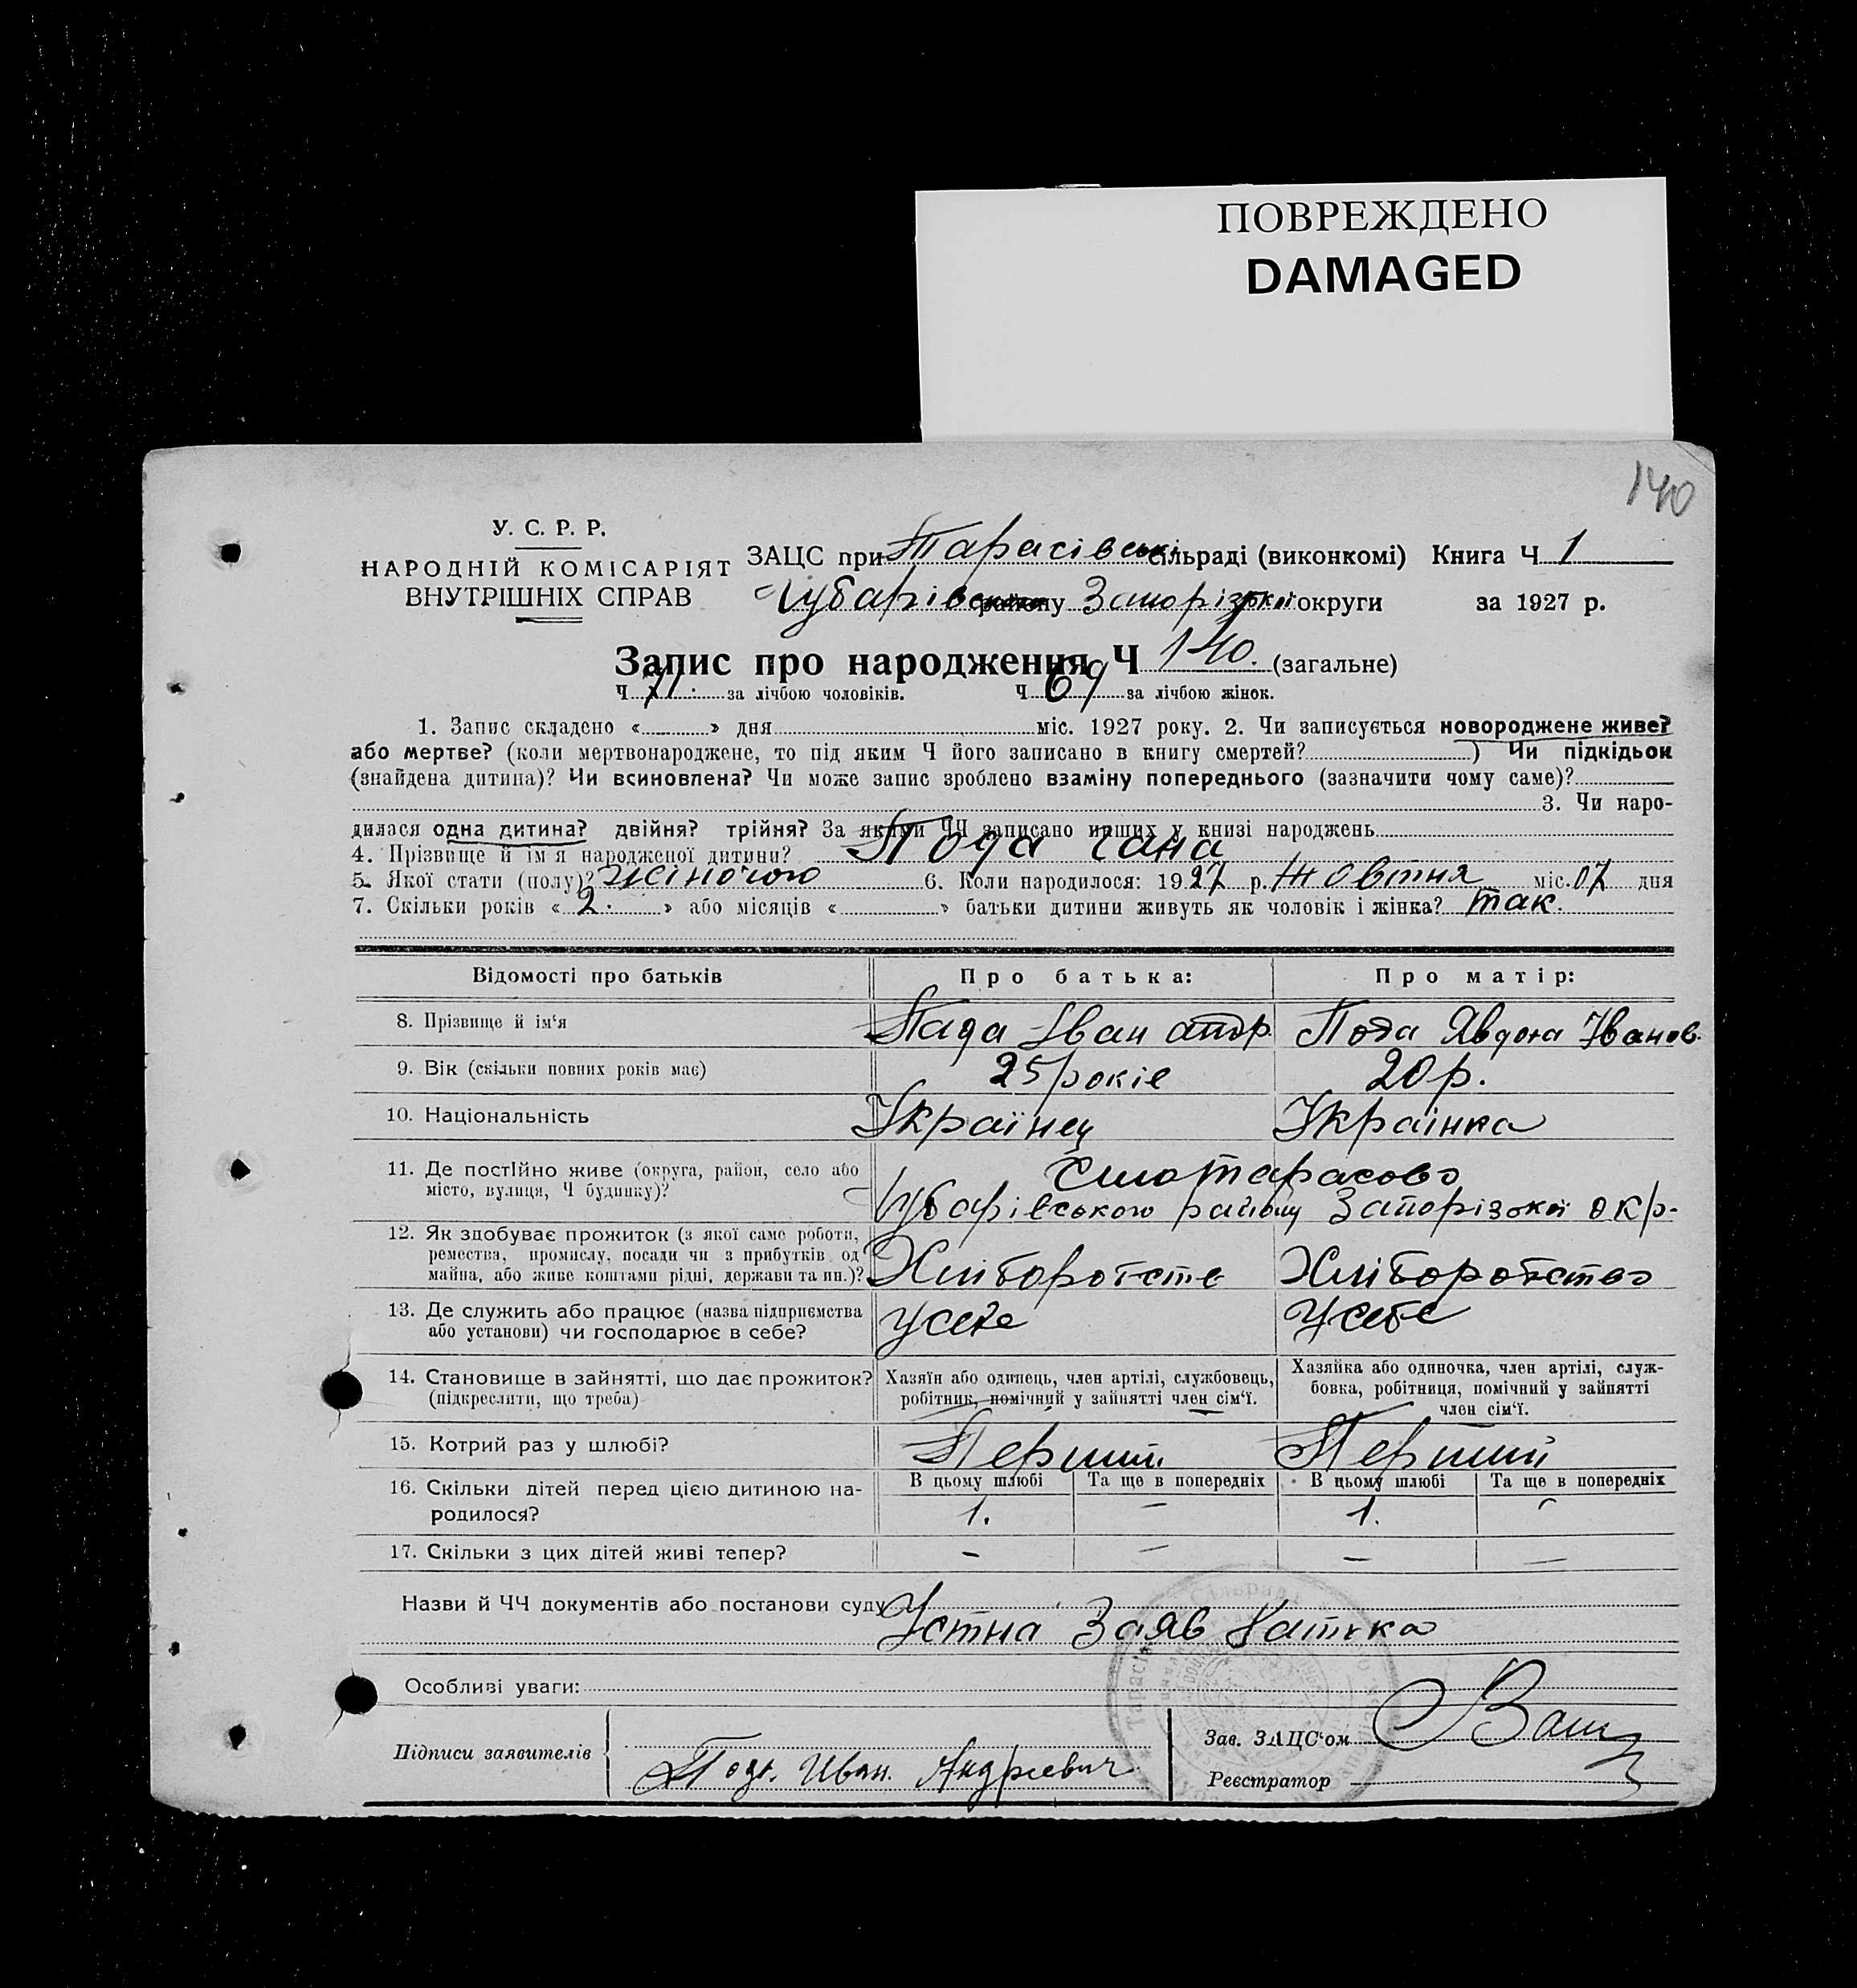 ПОВРЕЖДЕНО
DAMAGED
140
У. С. Р. Р.
НАРОДНІЙ КОМІСАРІЯТ
ВНУТРІШНІХ СПРАВ
ЗАЦС при Тарасівськ. сільраді (виконкомі) Книга Ч 1
Чубарівськ району Запорізької округи за 1927 р.
Запис про народження Ч 140. (загальне)
Ч 71. за лічбою чоловіків. Ч 69 за лічбою жінок.
1. Запис складено « » дня міс. 1927 року. 2. Чи записується новороджене живе?
або мертве? (коли мертвонароджене, то під яким Ч його записано в книгу смертей? ) Чи підкідьок
(знайдена дитина)? Чи всиновлена? Чи може запис зроблено взаміну попереднього (зазначити чому саме)?
3. Чи наро-
дилася одна дитина? двійня? трійня? За якими ЧЧ записано инших у книзі народжень
4. Прізвище й ім'я народженої дитини? Пода
5. Якої стати (полу)? жіночого 6. Коли народилося: 1927 р. жовтня міс. 07 дня
7. Скільки років « 2. » або місяців « » батьки дитини живуть як чоловік і жінка? так.
Відомості про батьків Про батька: Про матір:
8. Прізвище й ім'я Пада Іван андр. Пода Явдоха Іванов.
9. Вік (скільки повних років має) 25 років 20 р.
10. Національність Українец Українка
11. Де постІйно живе (округа, район, село або
місто, вулиця, Ч будинку)? Село Тарасово
Чубарівського району Запорізької окр.
12. Як здобуває прожиток (з якої саме роботи,
ремества, промислу, посади чи з прибутків од
майна, або живе коштами рідні, держави та ин.)? Хліборобств Хліборобство
13. Де служить або працює (назва підприємства
або установи) чи господарює в себе? У себе У себе
14. Становище в зайнятті, що дає прожиток?
(підкреслити, що треба)
Хазяїн або одинець, член артілі, службовець,
робітник, помічний у зайнятті член сім'ї.
Хазяйка або одиночка, член артілі, служ-
бовка, робітниця, помічний у зайнятті
член сім'ї.
15. Котрий раз у шлюбі? Перший Перший
В цьому шлюбі Та ще в попередніх В цьому шлюбі Та ще в попередніх
16. Скільки дітей перед цією дитиною на-
родилося? 1. – 1. –
17. Скільки з цих дітей живі тепер? – – – –
Назви й ЧЧ документів або постанови суду
Устна Заяв Батька
Особливі уваги:
Підписи заявителів
Зав. ЗАЦС'ом
Пода. Иван. Андреевич
Реєстратор